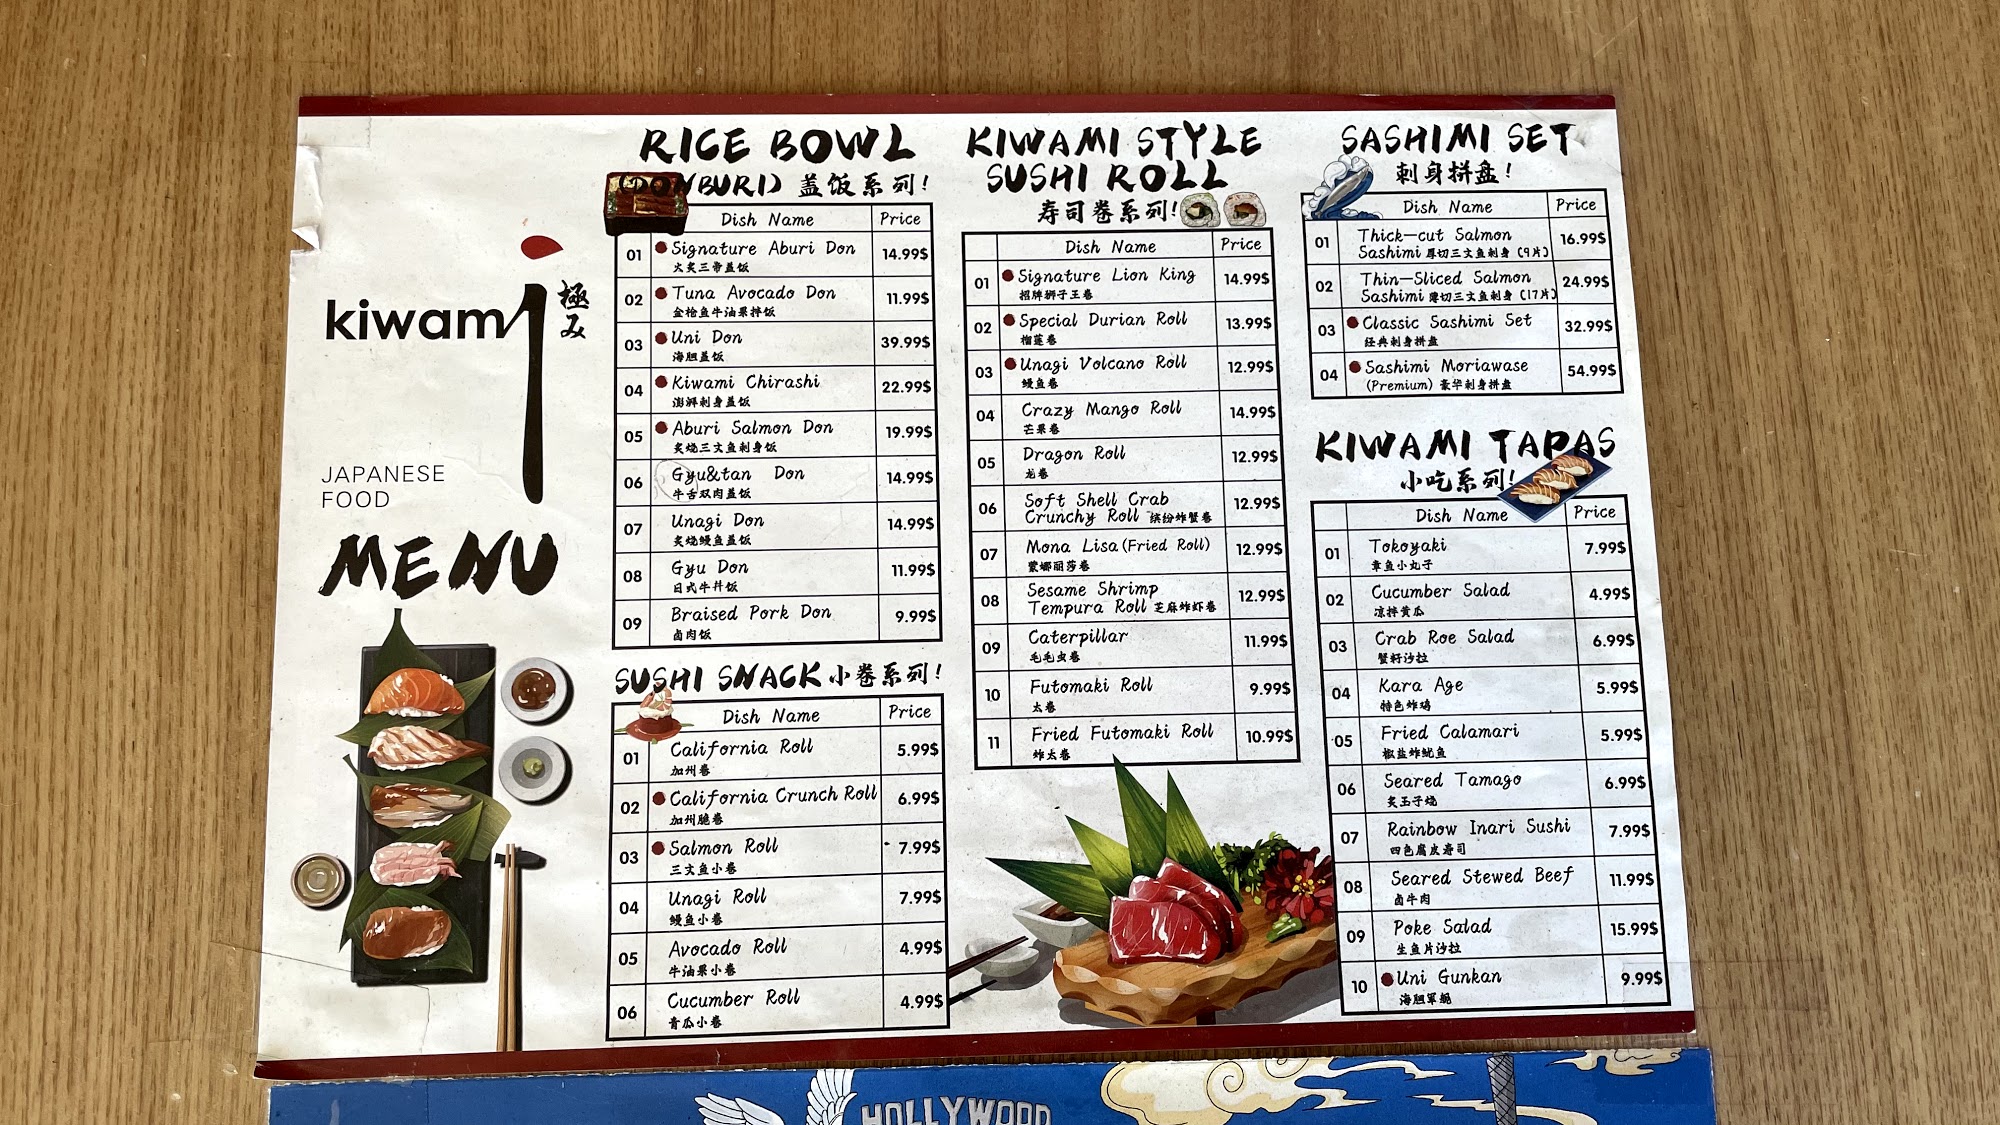 kiwami
極み
JAPANESE
FOOD
MENU
RICE BOWL
(DONBURI) 盖饭系列!
Dish Name Price
01 Signature Aburi Don 14.99$
火炙三帝盖饭
02 Tuna Avocado Don 11.99$
金枪鱼牛油果拌饭
03 Uni Don 39.99$
海胆盖饭
04 Kiwami Chirashi 22.99$
澎湃刺身盖饭
05 Aburi Salmon Don 19.99$
炙烧三文鱼刺身饭
06 Gyu&tan Don 14.99$
牛舌双肉盖饭
07 Unagi Don 14.99$
炙烧鳗鱼盖饭
08 Gyu Don 11.99$
日式牛丼饭
09 Braised Pork Don 9.99$
卤肉饭
SUSHI SNACK 小卷系列!
Dish Name Price
01 California Roll 5.99$
加州卷
02 California Crunch Roll 6.99$
加州脆卷
03 Salmon Roll 7.99$
三文鱼小卷
04 Unagi Roll 7.99$
鳗鱼小卷
05 Avocado Roll 4.99$
牛油果小卷
06 Cucumber Roll 4.99$
青瓜小卷
KIWAMI STYLE
SUSHI ROLL
寿司卷系列!
Dish Name Price
01 Signature Lion King 14.99$
招牌狮子王卷
02 Special Durian Roll 13.99$
榴莲卷
03 Unagi Volcano Roll 12.99$
鳗鱼卷
04 Crazy Mango Roll 14.99$
芒果卷
05 Dragon Roll 12.99$
龙卷
06 Soft Shell Crab 12.99$
Crunchy Roll 缤纷炸蟹卷
07 Mona Lisa(Fried Roll) 12.99$
蒙娜丽莎卷
08 Sesame Shrimp 12.99$
Tempura Roll 芝麻炸虾卷
09 Caterpillar 11.99$
毛毛虫卷
10 Futomaki Roll 9.99$
太卷
11 Fried Futomaki Roll 10.99$
炸太卷
SASHIMI SET
刺身拼盘!
Dish Name Price
01 Thick-cut Salmon 16.99$
Sashimi 厚切三文鱼刺身 (9片)
02 Thin-Sliced Salmon 24.99$
Sashimi 薄切三文鱼刺身 (17片)
03 Classic Sashimi Set 32.99$
经典刺身拼盘
04 Sashimi Moriawase 54.99$
(Premium) 豪华刺身拼盘
KIWAMI TAPAS
小吃系列!
Dish Name Price
01 Tokoyaki 7.99$
章鱼小丸子
02 Cucumber Salad 4.99$
凉拌黄瓜
03 Crab Roe Salad 6.99$
蟹籽沙拉
04 Kara Age 5.99$
特色炸鸡
05 Fried Calamari 5.99$
椒盐炸鱿鱼
06 Seared Tamago 6.99$
炙玉子烧
07 Rainbow Inari Sushi 7.99$
四色腐皮寿司
08 Seared Stewed Beef 11.99$
卤牛肉
09 Poke Salad 15.99$
生鱼片沙拉
10 Uni Gunkan 9.99$
海胆军舰
HOLLYWOOD